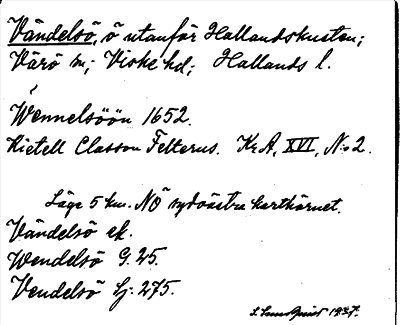 Vändelsö, ö utanför Hallandskusten;
Värö sn; Viske hd; Hallands l.
Wennelsöön 1652.
Kietell Classon Felterus. Kr.A, XVI, N:o 2.
Läge 5 km. NÖ sydvästra karthörnet.
Vändelsö ek.
Wendelsö G. 25.
Vendelsö Lj. 275.
S. Lundquist 1937.